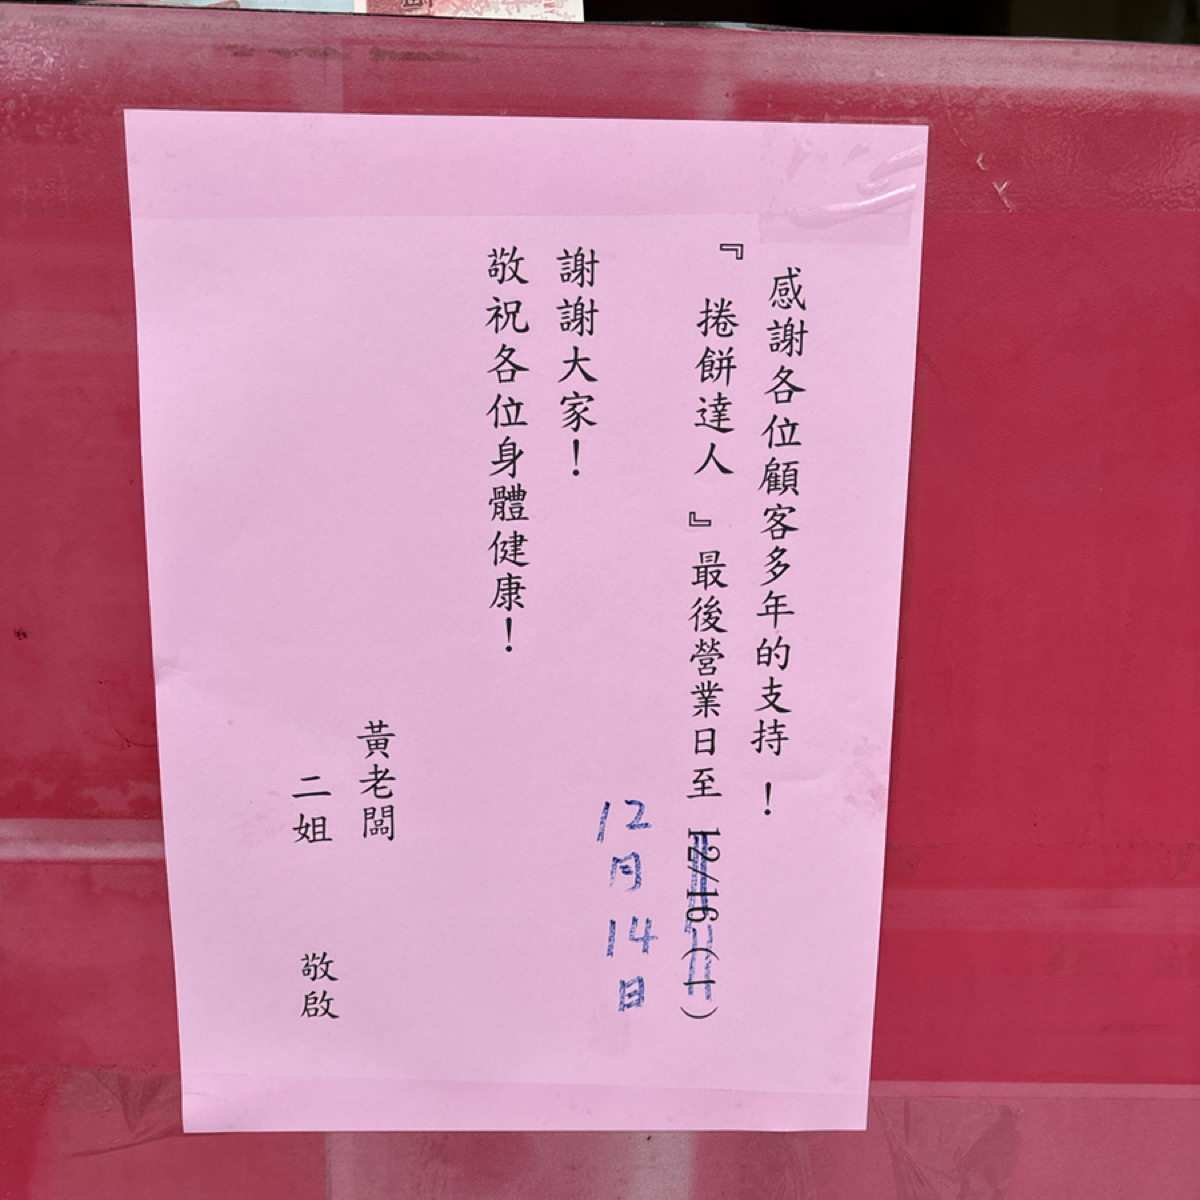 感謝各位顧客多年的支持！
『捲餅達人』最後營業日至 12/16(一)
12月14日
謝謝大家！
敬祝各位身體健康！
黃老闆
二姐 敬啟